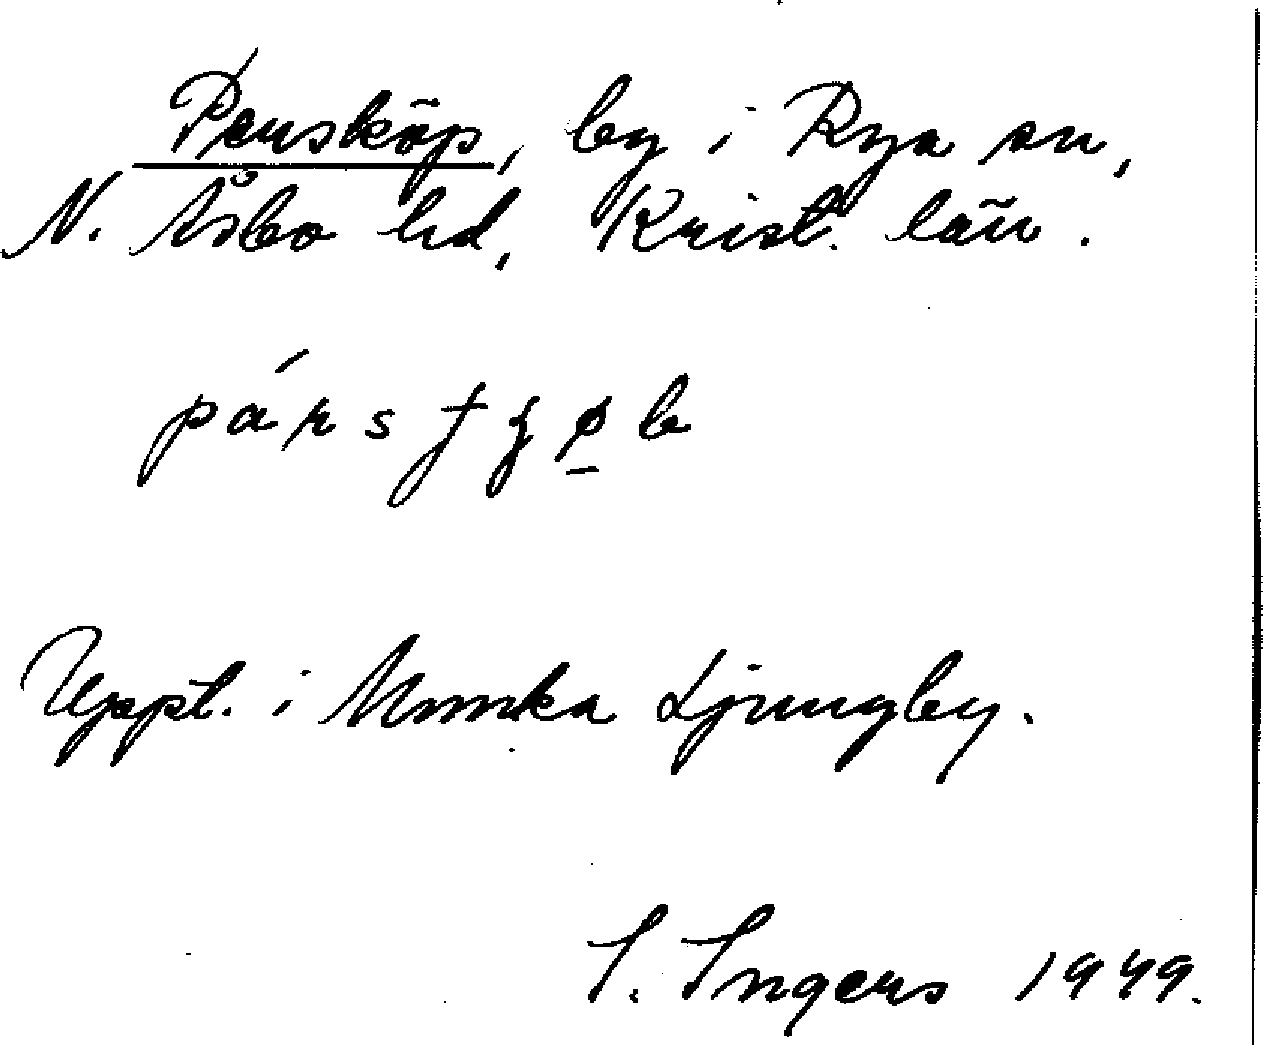 Persköp, by i Rya sn,
N. Åsbo hd, Krist. län.
Uppt. i Munka Ljungby.
I. Ingers 1949.